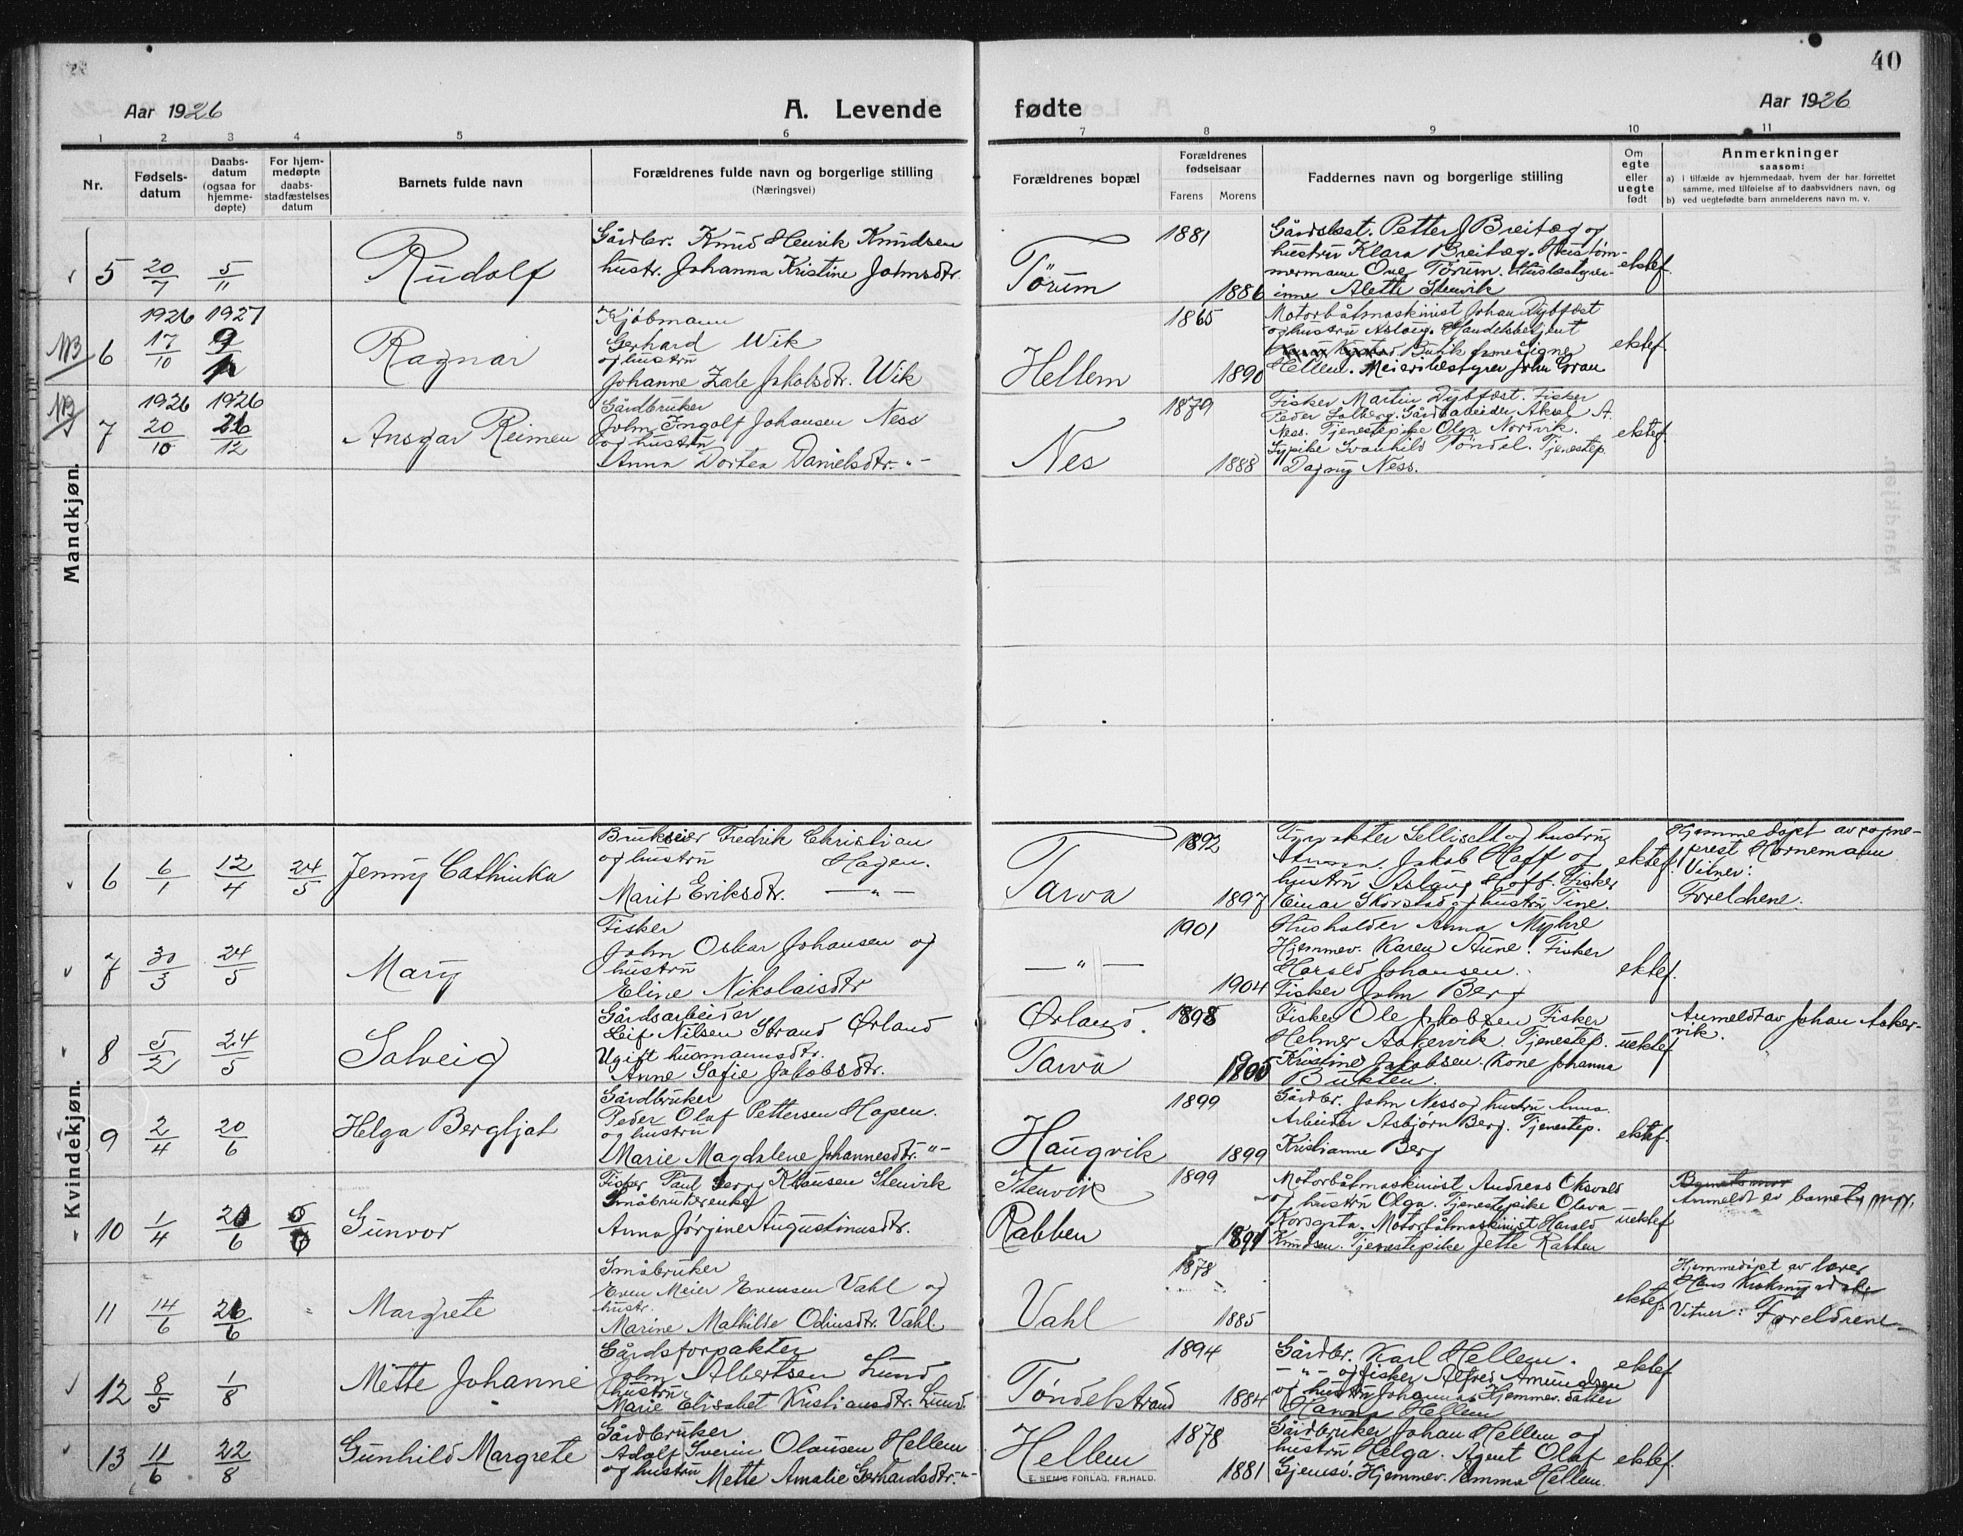 40
Aar 1926
A. Levende fødte
Aar 1926
1 2 3 4 5 6 7 8 9 10 11
Nr.
Fødsels-
datum
Daabs-
datum
(ogsaa for
hjemme-
døpte)
For hjem-
medøpte
daabs-
stadfæstelses
datum
Barnets fulde navn
Forældrenes fulde navn og borgerlige stilling
(Næringsvei)
Forældrenes bopæl
Forældrenes
fødselsaar
Farens Morens
Faddernes navn og borgerlige stilling
Om
egte
eller
uegte
født
Anmerkninger
saasom:
a) i tilfælde av hjemmedaab, hvem der har forrettet
samme, med tilføielse af to daabsvidners navn, og
b) ved uegtefødte barn anmelderens navn m. v.
Mandkjøn.
5 20/7 5/11 Rudolf
Gårdbr. Knud Henrik Knudsen
hustr. Johanna Kristine Johnsdtr.
Tørum 1881 1886
Gårdbest. Petter J Breitæg og
hustru Klara Breitæg. Hustøm-
mermann Ove Tørum. Husbestyrer-
inne Alette Stenvik
ektef.
NB 6 1926 17/10 1927 9/1 Ragnar
Kjøbmann
Gerhard Wik
og hustru
Johanne Zale Jakobsdtr. Wik
Hellem 1865 1890
Motorbåtmaskinist Johan Dybfest
og hustru Aslaug. Handelsbetjent
Butikdame Signe
Hellem. Meieribestyrer John Gran
ektef.
NB 7 1926 20/10 1926 26/12 Ansgar Reimen
Gårdbruker
John Ingolf Johansen Ness
og hustru
Anna Dortea Danielsdtr. -"-
Nes 1879 1888
Fisker Martin Dybfest. Fisker
Peder Solberg. Gårdarbeider Aksel A.
Ness. Tjenestepike Olga Nordvik.
Sypike Svanhild Tøndel. Tjenestep.
Dagny Ness.
ektef.
Kvindekjøn.
6 6/1 12/4 24/5 Jenny Cathinka
Brukseier Fredrik Christian
og hustru Hagen.
Marit Eriksdtr. -"-
Tarva 1892 1897
Fyrvakter Sellisett og hustru
Anna. Jakob Hoff og
hustru Aslaug Hoff. Fisker
Einar Skorstad og hustru Tine.
ektef.
Hjemmedøpt av sogne-
prest Hornemann
Vitner:
Foreldrene.
7 30/3 24/5 Mary
Fisker
John Oskar Johansen og
hustru
Eline Nikolaisdtr
-"- 1901 1904
Husholder Anna Myhre
Hjemmev. Karen Aune. Fisker
Harald Johansen.
Fisker John Berg
ektef.
8 5/2 24/5 Solveig
Gårdsarbeider
Leif Nilsen Strand Ørland
Ugift husmannsdtr.
Anne Sofie Jakobsdtr.
Ørland. 1898
Tarva 1905
Fisker Ole Jakobsen Fisker
Helmer Aakervik. Tjenestep.
Kristine Jakobsen. Kone Johanna
Bukten.
uektef
Anmeldt av Johan Aaker-
vik.
9 2/4 20/6 Helga Bergljot
Gårdbruker
Peder Olaf Pettersen Hopen.
og hustru
Marie Magdalene Johannesdtr. -"-
Haugvik 1899 1899
Gårdbr. John Ness og hustru Anna.
Arbeider Asbjørn Berg. Tjenestep.
Kristianne Berg
ektef.
10 1/4 20/6 Gunvor
Fisker Paul Berg Klausen Stenvik
Småbrukerenke
Anna Jørgine Augustinusdtr.
Stenvik 1899
Rabben 1891
Motorbåtmaskinist Andreas Oksvold
og hustru Olga. Tjenestepike Olava
Norsgita. Motorbåtmaskinist Harald
Knudsen. Tjenestepike Jette Rabben
uektef
Anmeldt av barnets mor.
11 14/6 26/6 Margrete
Småbruker
Even Meier Evensen Vahl og
hustr.
Marine Mathilde Odinsdtr. Vahl
Vahl 1878 1885
ektef.
Hjemmedøpt av lærer
Hans
Vitner: Foreldrene
12 8/5 1/8 Mette Johanne
Gårdsforpakter
John Albertsen Lund
hustru
Marie Elisabet Kristiansdtr. Lund
Tøndelstrand 1894 1884
Gårdbr. Karl Hellem.
-"- og fisker Alfred Amundsen
og hustru Johanna. Hjemmev. datter
Hanna Hellem
ektef
13 11/6 22/8 Gunhild Margrete
Gårdbruker
Adolf Sverin Olausen Hellem
og hustru Mette Amalie Gerhardsdtr. -"-
Hellem 1878 1881
Gårdbruker Johan Hellem og
hustru Helga. Agent Olaf
Gjemsø. Hjemmev. Emma Hellem.
ektef.
E. SEMS FORLAG, FR.HALD.